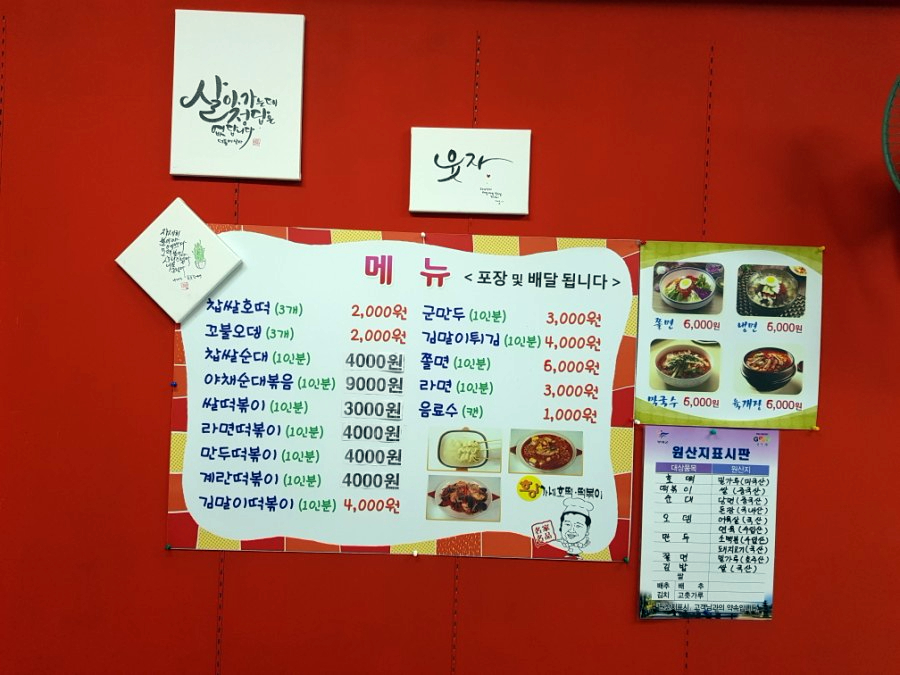 살아가는데
정답은
없답니다
웃자
메 뉴 < 포장 및 배달 됩니다 >
찹쌀호떡 (3개) 2,000원
꼬불오뎅 (3개) 2,000원
찹쌀순대 (1인분) 4000원
야채순대볶음 (1인분) 9000원
쌀떡볶이 (1인분) 3000원
라면떡볶이 (1인분) 4000원
만두떡볶이 (1인분) 4000원
계란떡볶이 (1인분) 4000원
김말이떡볶이 (1인분) 4,000원
군만두 (1인분) 3,000원
김말이튀김 (1인분) 4,000원
쫄면 (1인분) 6,000원
라면 (1인분) 3,000원
음료수 (캔) 1,000원
가네호떡·떡볶이
名家
名品
쫄면 6,000원
냉면 6,000원
막국수 6,000원
육개장 6,000원
원산지표시판
대상품목 원산지
호 떡 밀가루(미국산)
떡볶이 쌀(중국산)
순 대 당면(중국산)
돈장(국내산)
오 뎅 어육살(국산)
연육(수입산)
만 두 소맥분(수입산)
돼지고기(국산)
쫄 면 밀가루(호주산)
김 밥 쌀(국산)
쌀
배추 배 추
김치 고춧가루
고객님과의 약속입니다